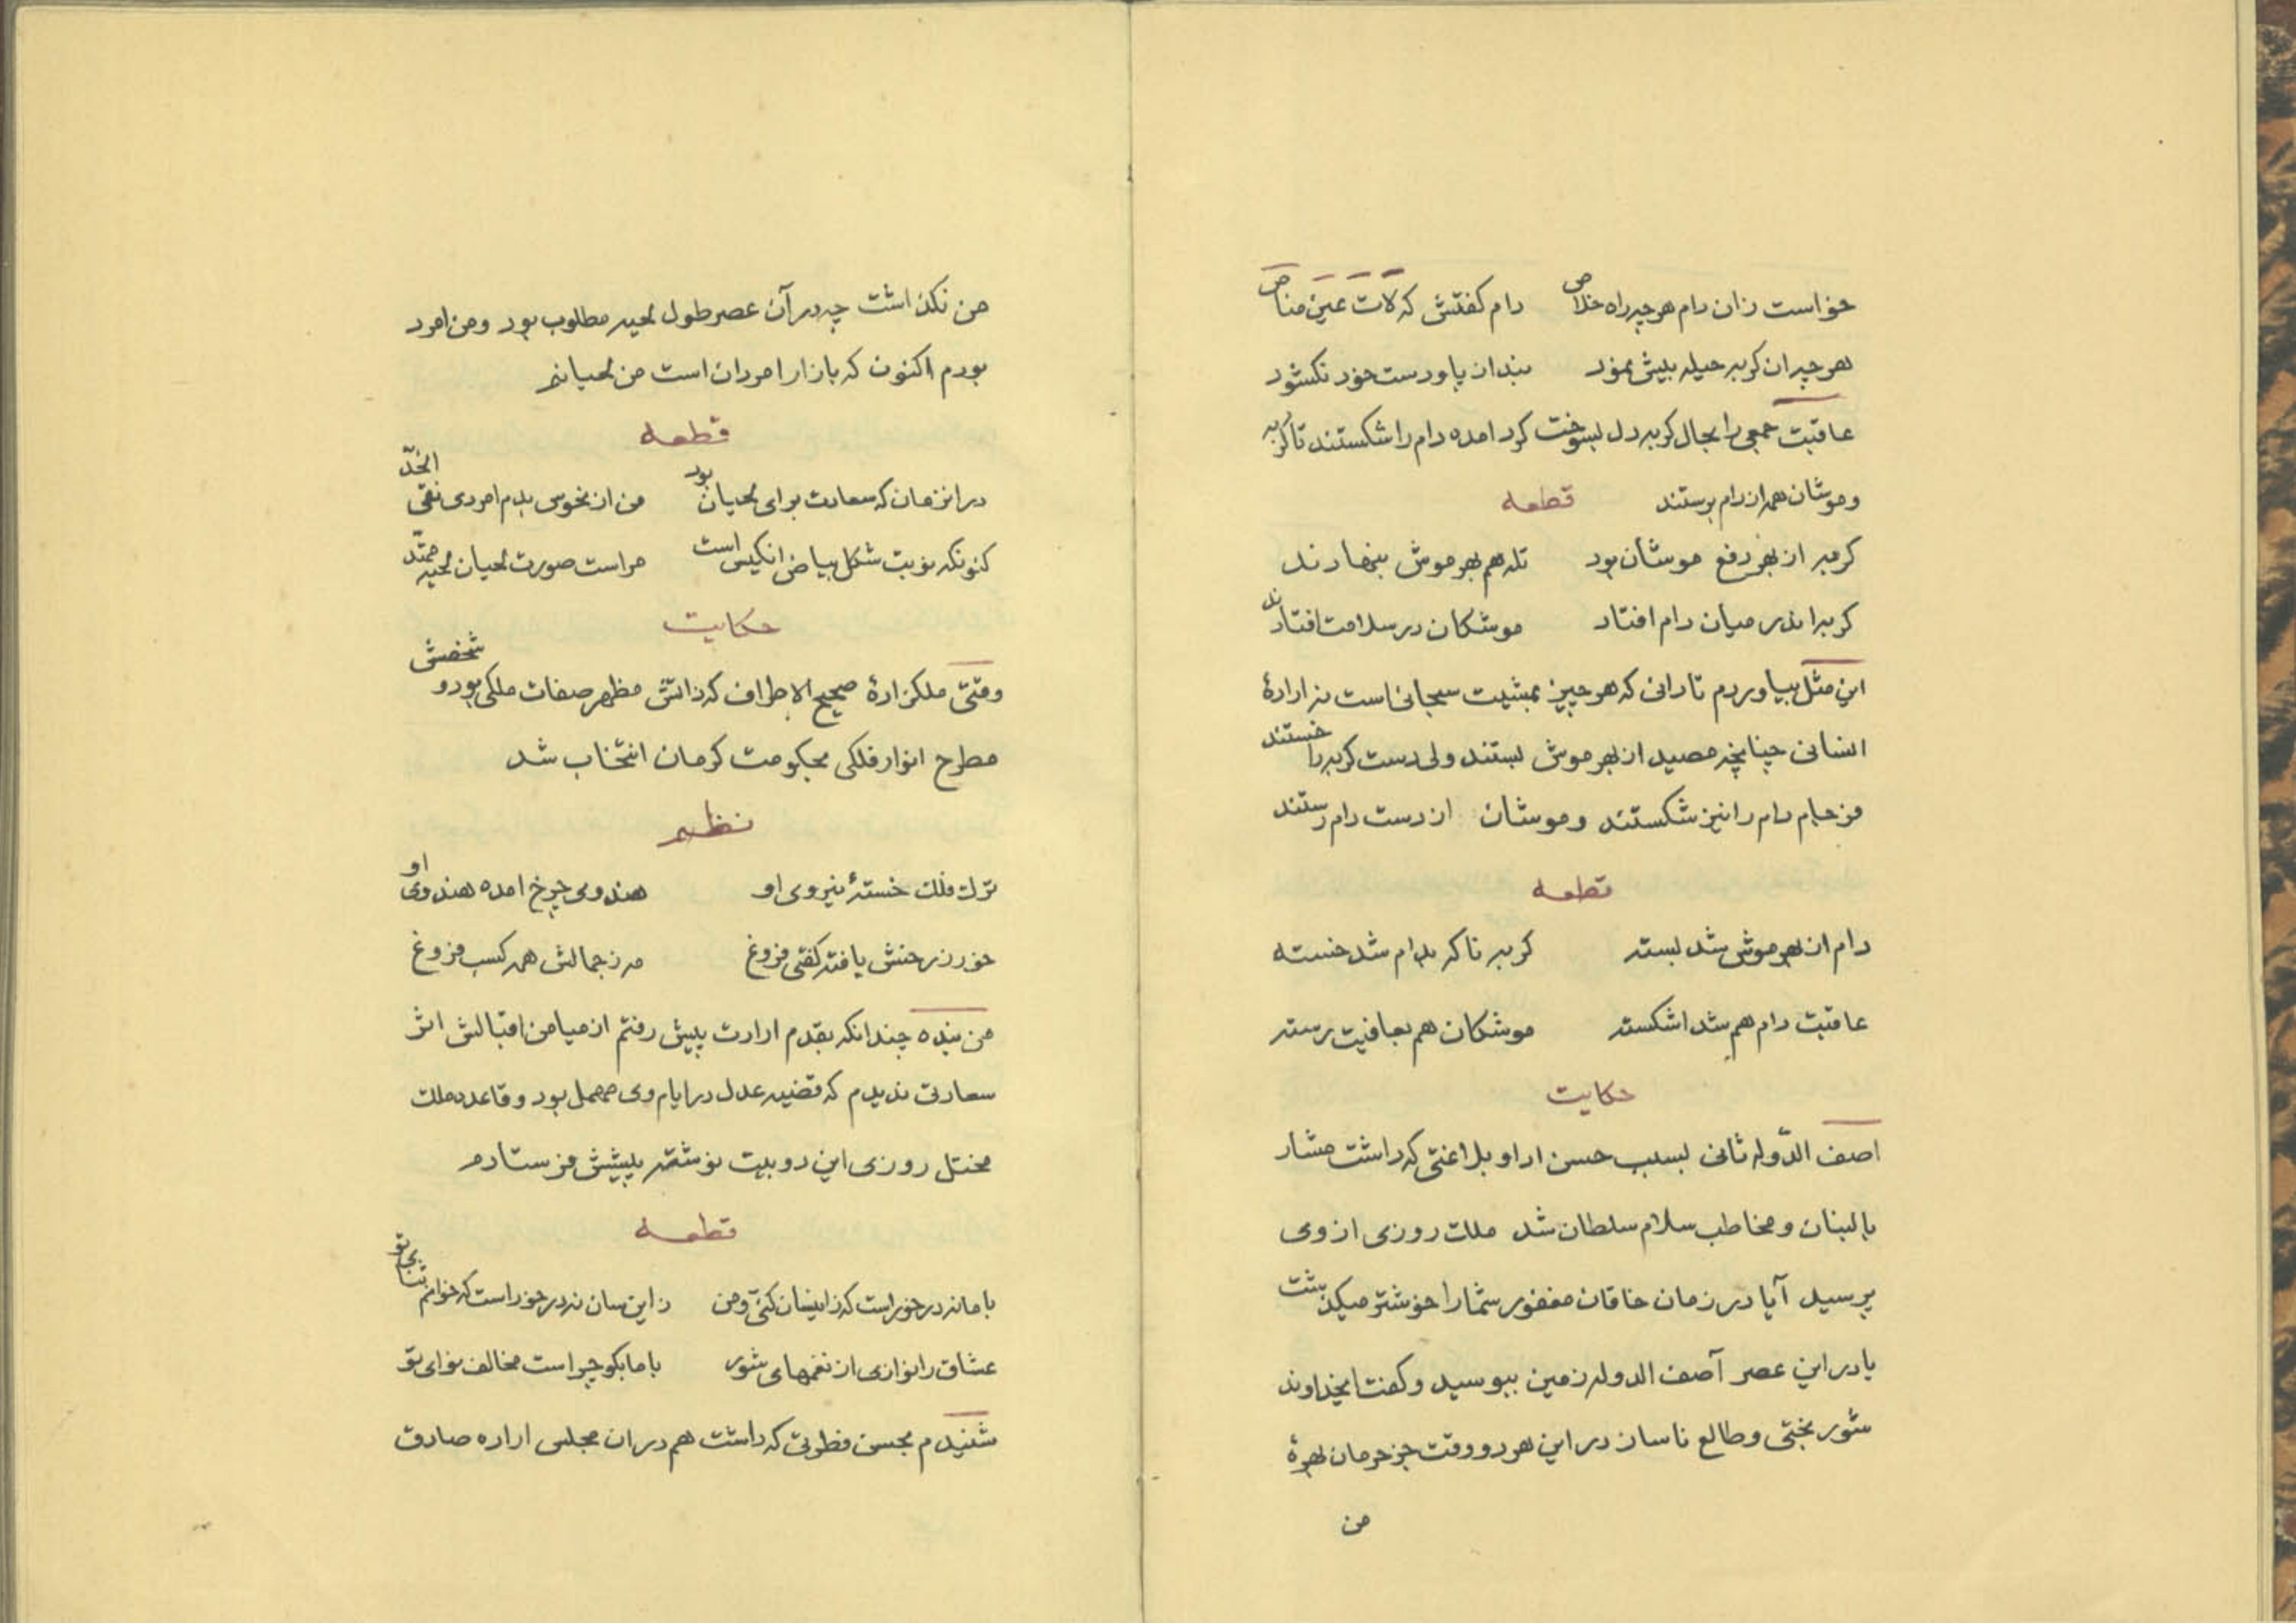 خواست زان دام هر چه راه خلاص دام گفتش که لات عین مناص
هر چه ان کربه حیله بیش نمود بندازپا و دست خود نکشود
عاقبت جمعی را بحال کربه دل بسوخت کرد امده دام را شکستند تا کربه
و موشان همه از دام برستند قطعه
کربه از بهر دفع موشان بود تله هم بهر موش بنهادند
کربه اندر میان دام افتاد موشکان در سلامت افتادند
این مثل بیاوردم تا دانی که هر چیز بمشیت سبحانی است نه ارادهٔ
انسانی چنانچه مصید از بهر موش بستند ولی دست کربه را خستند
فرجام دام را نیز شکستند و موشان از دست دام رستند
قطعه
دام از بهر موش شد بسته کربه ناکه بدام شد خسته
عاقبت دام هم شد اشکسته موشکان هم بعافیت رسته
حکایت
اصف الدّوله ثانی بسبب حسن ادا و بلاغتی که داشت مشار
بالبنان و مخاطب سلام سلطان شد ملک روزی از وی
پرسید آیا در زمان خاقان مغفور شما را خوشتر میکذشت
یا در این عصر آصف الدوله زمین ببوسید و کفت ایخداوند
شور بختی و طالع ناساز در این هر دو وقت جز حرمان بهرهٔ
من
من نکذاشت چه در آن عصر طول لحیه مطلوب بود و من امرد
بودم اکنون که بازار امردان است من لحیانیم
قطعه
در انزمان که سعادت برای لحیان بود من از نحوس بدم امردی نقی الخدّ
کنونکه نوبت شکل بیاض انکیس است مراست صورت لحیان لحیه ممتدّ
حکایت
وقتی ملکزادهٔ صحیح الاطراف که ذاتش مظهر صفات ملکی بود و شخصش
مطرح انوار فلکی بحکومت کرمان انتخاب شد
نظم
ترک فلک خستهٔ نیروی او هندوی چرخ امده هندوی او
خور ز رخش یافته کفتی فروغ مه ز جمالش همه کسب فروغ
من بنده چندانکه بقدم ارادت پیش رفتم از میامن اقبالش اثر
سعادتی ندیدم که قضیه عدل در ایام وی مهمل بود و قاعده ملک
مختل روزی این دو بیت نوشته پیشش فرستادم
قطعه
با ما نه در خور است که زاینسان کنی و من زاین سان نه در خور است که خوانم ثنای تو
عشاق را نوازی از نغمهای شور با ما بکو چراست مخالف نوای تو
شنیدم بحسن فطرتی که داشت هم دران مجلس اراده صادق